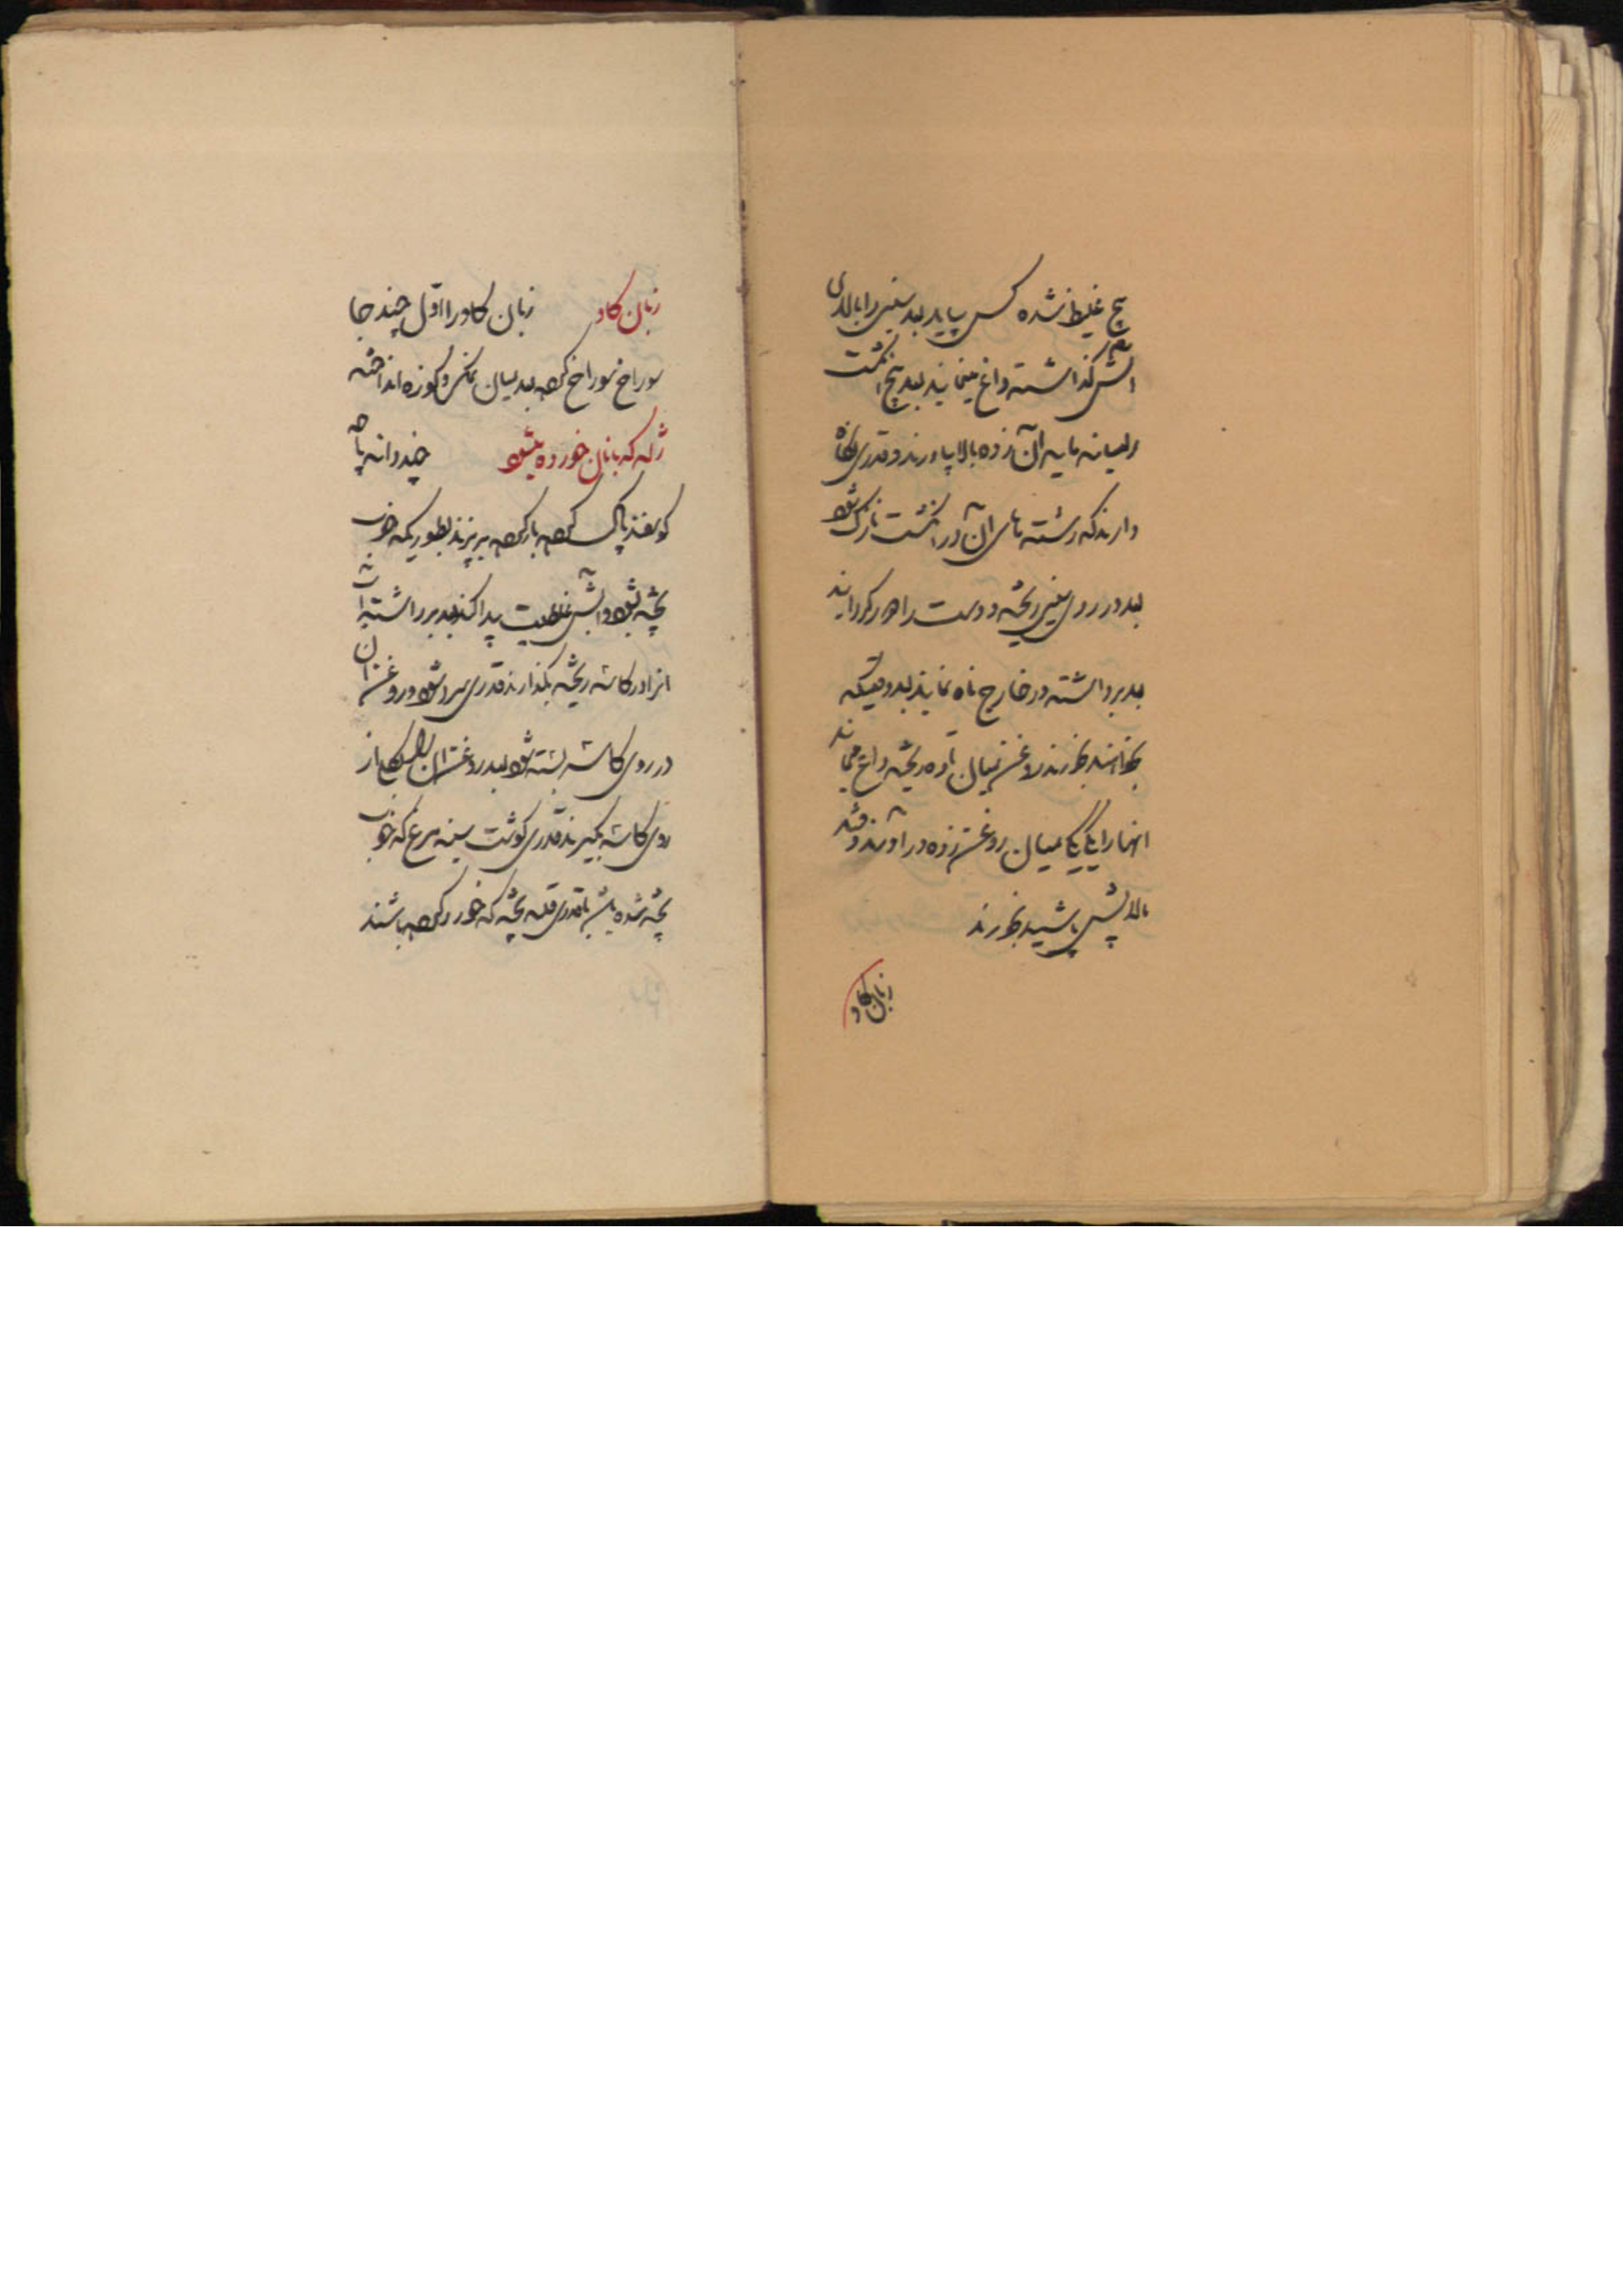 غلیظ شده کس بیاید بعد سینی را بالای
آتش گذاشته داغ مینمایند بعد پنج انگشت
را میان مایه آن زده بالا بیاورند و قدری نگاه
دارند که رشته های آن در انگشت نازک شود
بعد در روی سینی ریخته و دست را هر گردانیده
بعد برداشته در خارج ماه نمایند بعد وقتیکه
بخواهند بخورند روغن میان تاوه ریخته داغ می نمایند
آنها را یک یک میان روغن زده درآورند و قند
بالایش پاشیده بخورند
زبان گاو
زبان گاو زبان گاو را اول چند جا
سوراخ سوراخ کرده بعد میان نمک و کوزه انداخته
ژله که با نان خورده میشود چند دانه پاچه
گوسفند پاک کرده بار کرده بپزند بطوریکه خوب
پخته شود و آبش غلظت پیدا کند بعد برداشته آب
آنرا در کاسه ریخته بگذارند قدری سرد شود و روغن آن
در روی کاسه بسته شود بعد روغن آن را از
روی کاسه بگیرند قدری گوشت سینه مرغ که خوب
پخته شده باشد با قدری پخته که خورد کرده باشند